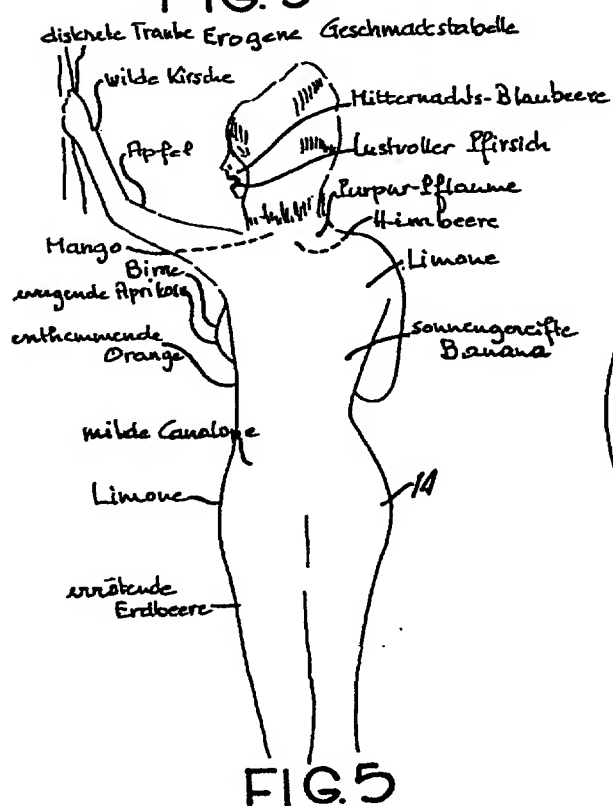 FIG. 3
diskrete Traube Erogene Geschmackstabelle
wilde Kirsche
Mitternachts-Blaubeere
Apfel
Lustvoller Pfirsich
Purpur-Pflaume
Himbeere
Mango
Limone
Birne
erregende Aprikose
enthemmende
Orange
sonnengereifte
Banana
milde Canalope
Limone
14
errötende
Erdbeere
FIG. 5